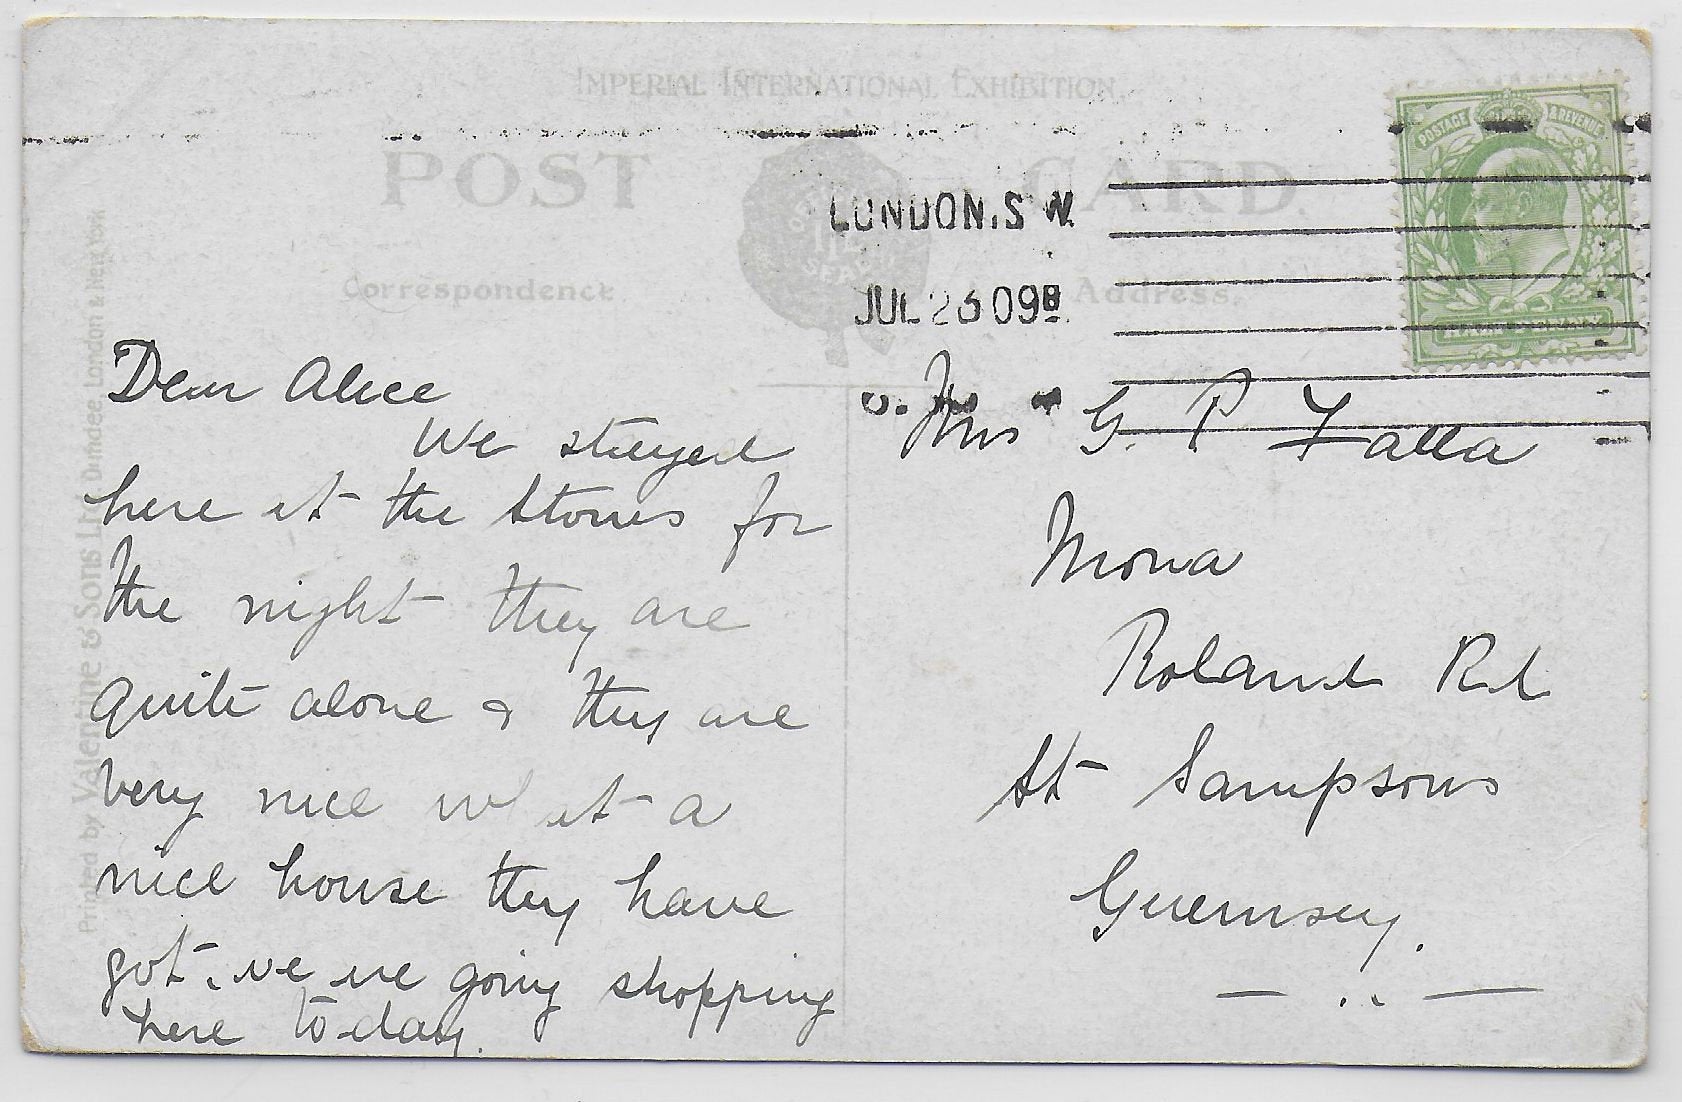 IMPERIAL INTERNATIONAL EXHIBITION.
POST CARD.
POSTAGE & REVENUE
LONDON.S.W.
JUL 26 09
Correspondence
Address.
Printed by Valentine & Sons Ltd Dundee London & New York
Dear Alice
We stayed
here at the Stones for
the night they are
quite alone & they are
very nice what a
nice house they have
got. we are going shopping
here to-day.
Mrs G. P Falla
Mona
Roland Rd
St Sampsons
Guernsey.